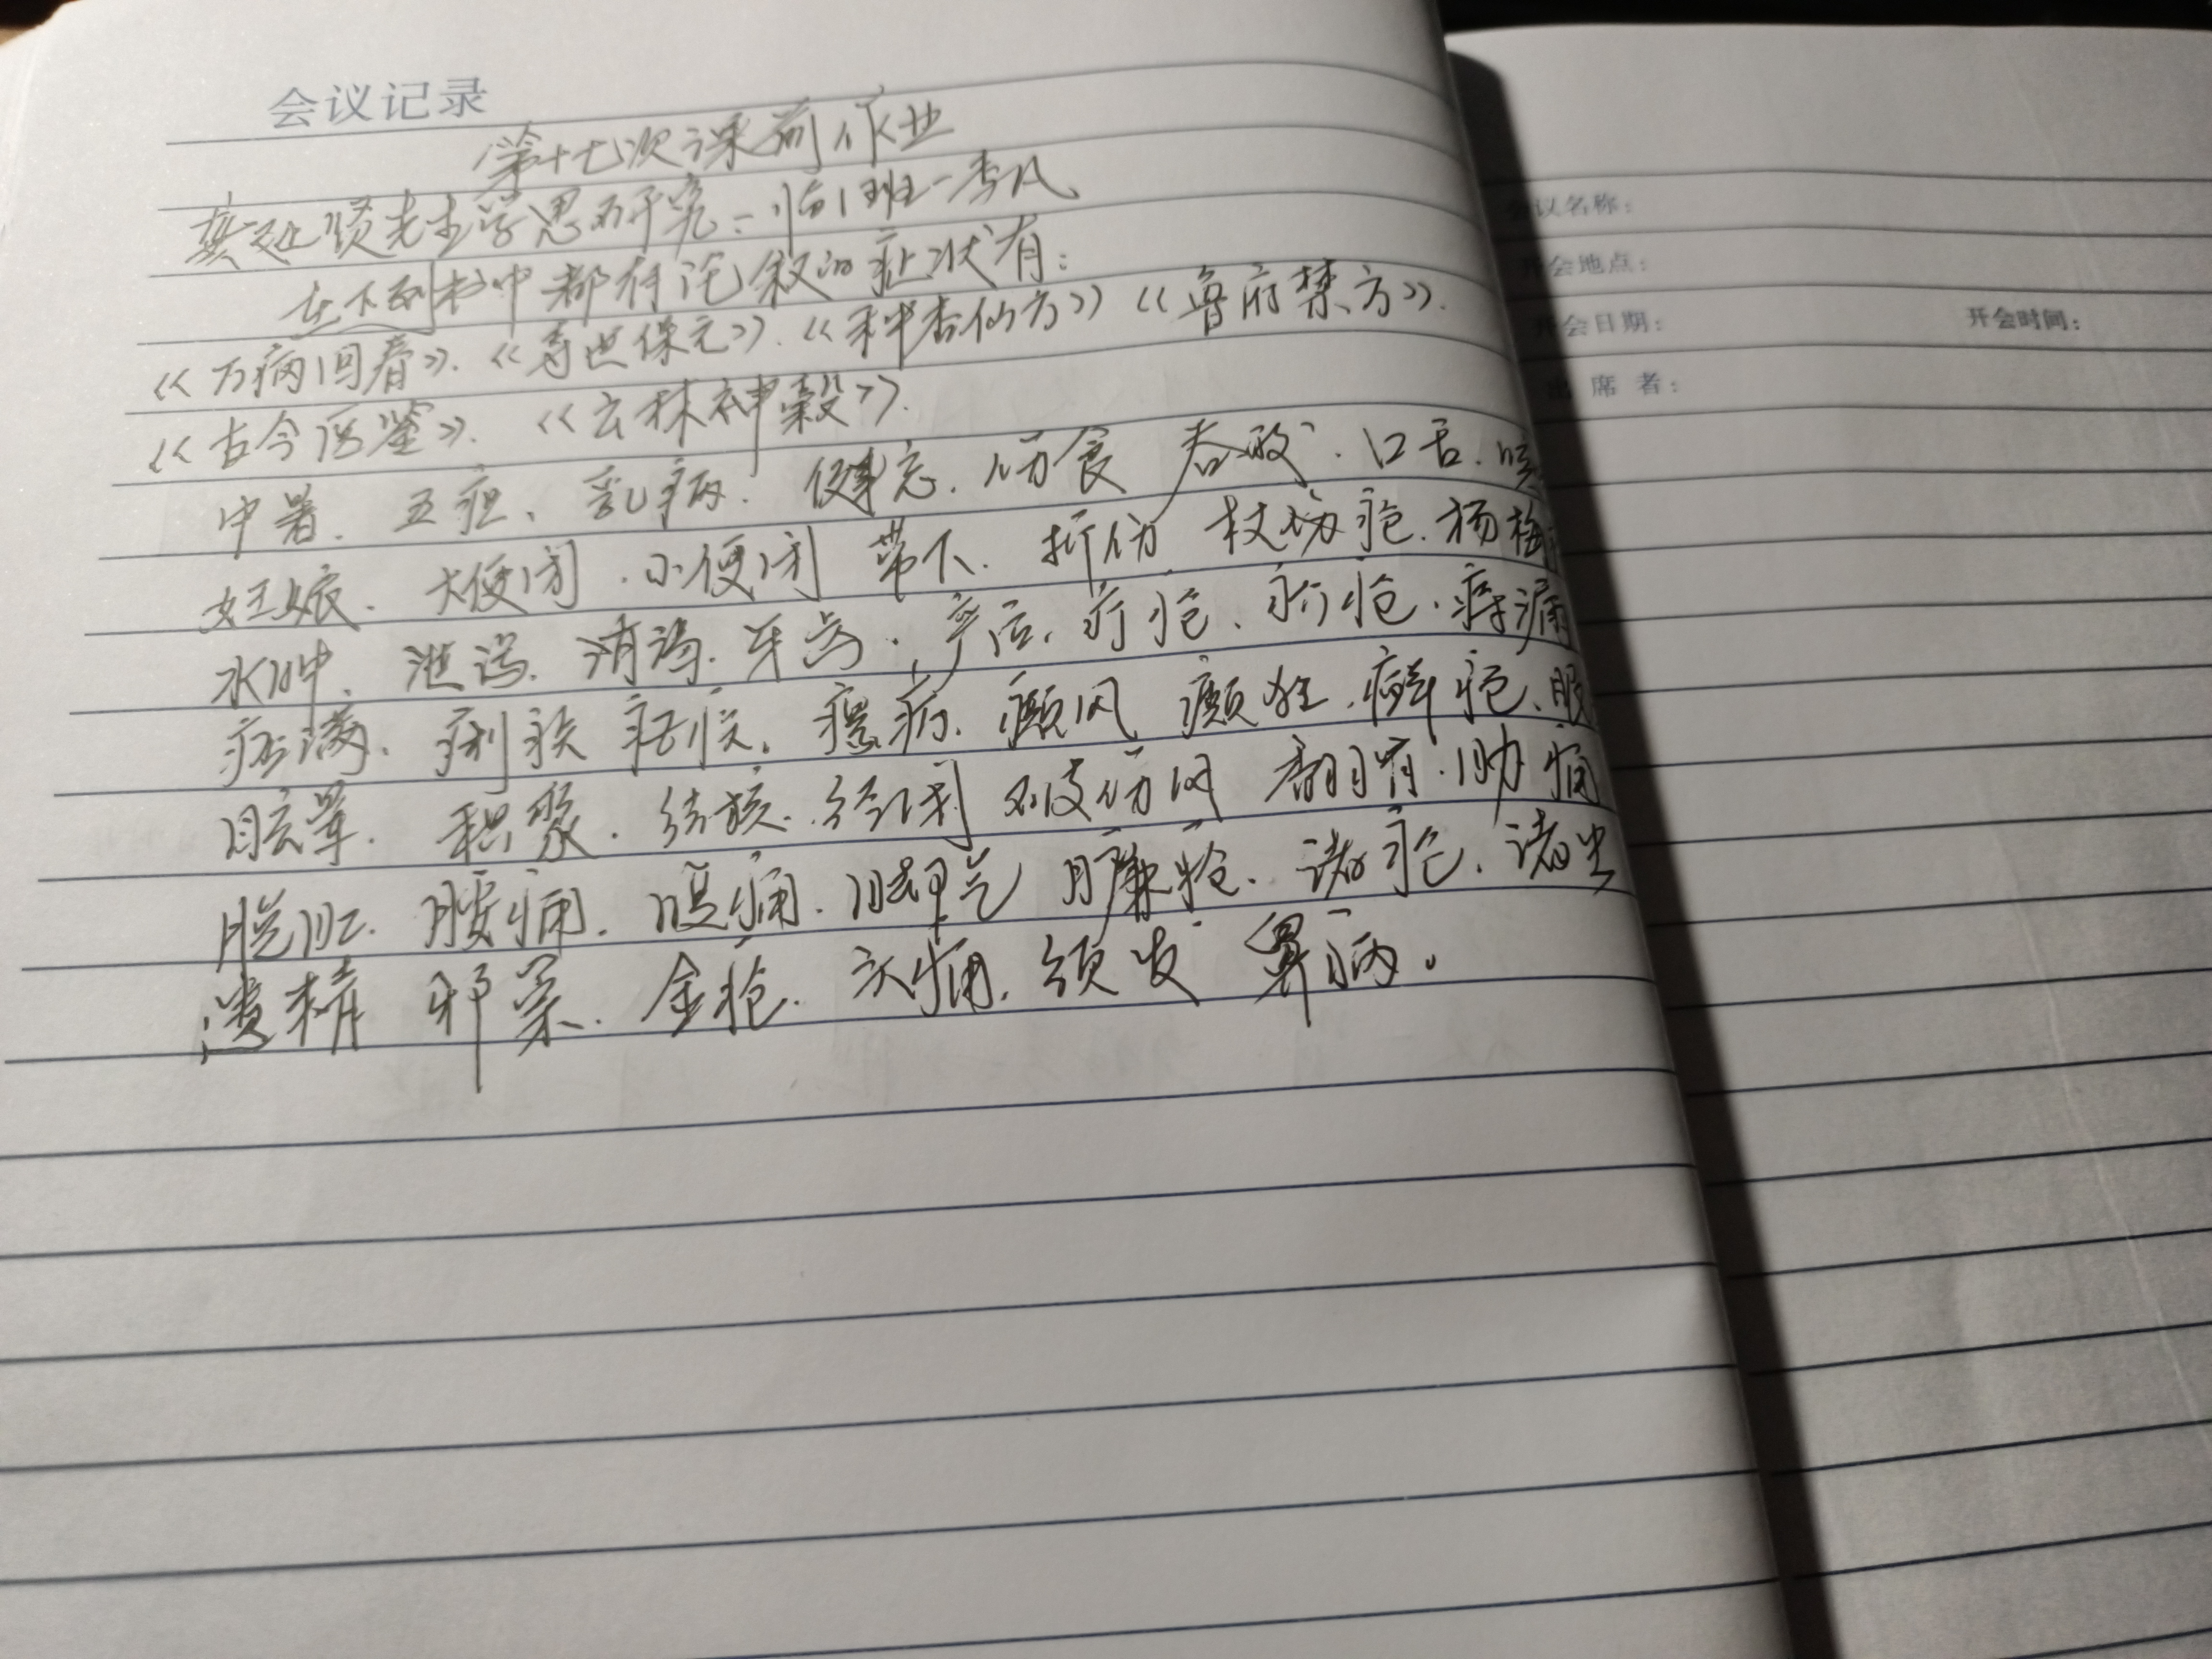 会议记录
第十七次课前作业
龚廷贤先生学思研究-临1班-李凡
在下列书中都有论叙的症状有:
《万病回春》.《寿世保元》.《种杏仙方》《鲁府禁方》.
《古今医鉴》.《云林神彀》.
中暑.五疸、乳病.健忘.伤食 吞酸.口舌.
妊娠.大便闭.小便闭 带下.折伤 杖疮.杨梅
水肿、泄泻.消渴.牙齿.产后.疔疮、疥疮.痔漏
痞满、痢疾 瘰疬.癫风 癫狂.癣疮、
眩晕.积聚.结核.破伤风 翻胃.胁痛
脱肛.腰痛.眼痛.脚气 臁疮.诸疮.诸虫
遗精 邪祟.金疮.头痛.须发 鼻病。
会议名称:
开会地点:
开会日期: 开会时间:
出席者: